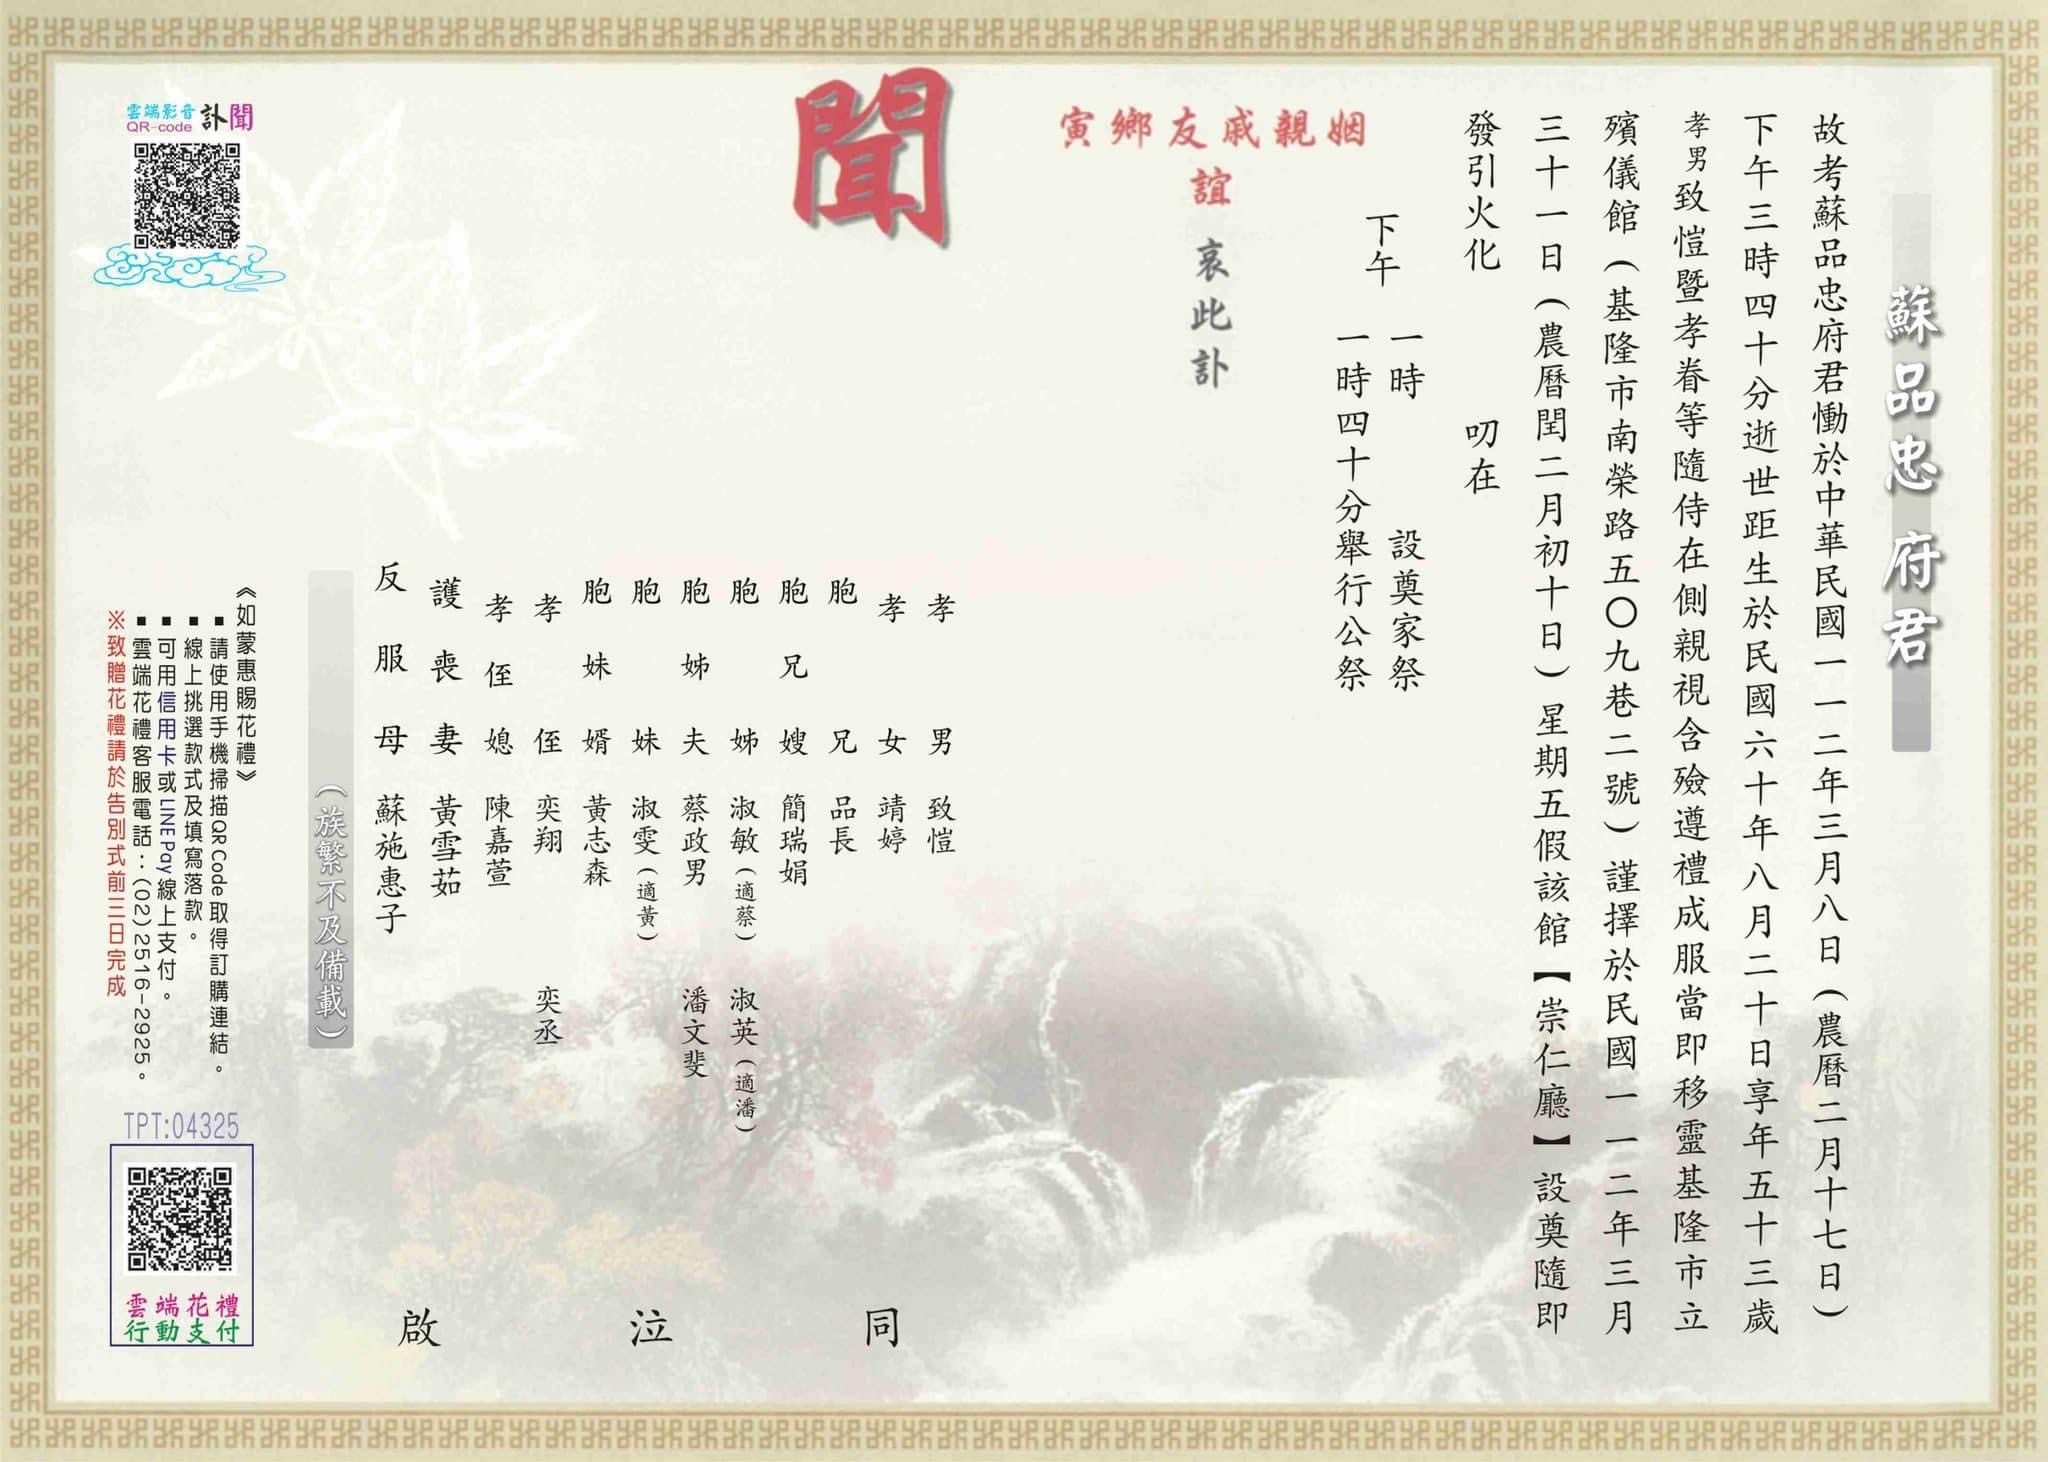 蘇品忠 府君
故考蘇品忠府君慟於中華民國一一二年三月八日(農曆二月十七日)
下午三時四十分逝世距生於民國六十年八月二十日享年五十三歲
孝男致愷暨孝眷等隨侍在側親視含殮遵禮成服當即移靈基隆市立
殯儀館(基隆市南榮路五〇九巷二號)謹擇於民國一一二年三月
三十一日(農曆閏二月初十日)星期五假該館【崇仁廳】設奠隨即
發引火化 叨在
下午
一時 設奠家祭
一時四十分舉行公祭
姻親戚友鄉寅
誼 哀此訃
聞
孝男 致愷
孝女 靖婷
胞兄 品長
胞兄嫂 簡瑞娟
胞姊 淑敏(適蔡) 淑英(適潘)
胞姊夫 蔡政男 潘文斐
胞妹 淑雯(適黃)
胞妹婿 黃志森
孝侄 奕翔 奕丞
孝侄媳 陳嘉萱
護喪妻 黃雪茹
反服母 蘇施惠子
同 泣 啟
(族繁不及備載)
雲端影音
QR-code
訃聞
《如蒙惠賜花禮》
▪請使用手機掃描QRCode取得訂購連結。
▪線上挑選款式及填寫落款。
▪可用信用卡或LINEPay線上支付。
▪雲端花禮客服電話:(02)2516-2925。
※致贈花禮請於告別式前三日完成
TPT:04325
雲端花禮
行動支付